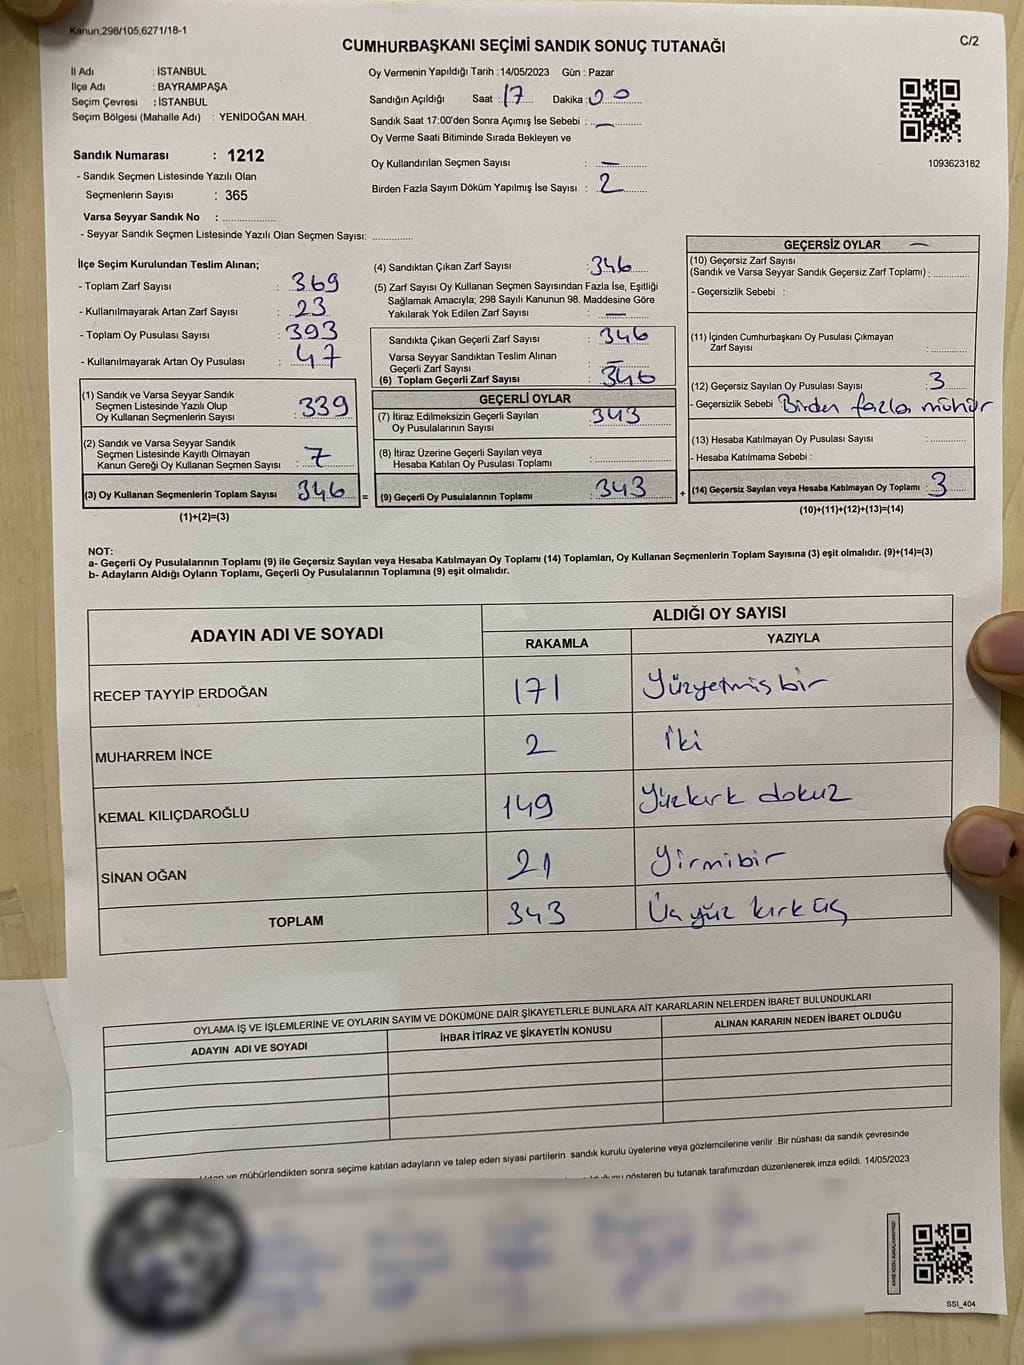 Kanun;298/105,6271/18-1
C/2
CUMHURBAŞKANI SEÇİMİ SANDIK SONUÇ TUTANAĞI
İl Adı : İSTANBUL
İlçe Adı : BAYRAMPAŞA
Seçim Çevresi : İSTANBUL
Seçim Bölgesi (Mahalle Adı) : YENİDOĞAN MAH.
Sandık Numarası : 1212
- Sandık Seçmen Listesinde Yazılı Olan
Seçmenlerin Sayısı : 365
Varsa Seyyar Sandık No : ..............
- Seyyar Sandık Seçmen Listesinde Yazılı Olan Seçmen Sayısı: ............
Oy Vermenin Yapıldığı Tarih : 14/05/2023 Gün : Pazar
Sandığın Açıldığı Saat : 17 Dakika : 00
Sandık Saat 17:00'den Sonra Açımış İse Sebebi : —
Oy Verme Saati Bitiminde Sırada Bekleyen ve
Oy Kullandırılan Seçmen Sayısı : —
Birden Fazla Sayım Döküm Yapılmış İse Sayısı : 2
1093623182
İlçe Seçim Kurulundan Teslim Alınan;
- Toplam Zarf Sayısı : 369
- Kullanılmayarak Artan Zarf Sayısı : 23
- Toplam Oy Pusulası Sayısı : 393
- Kullanılmayarak Artan Oy Pusulası : 47
(1) Sandık ve Varsa Seyyar Sandık
Seçmen Listesinde Yazılı Olup
Oy Kullanan Seçmenlerin Sayısı : 339
(2) Sandık ve Varsa Seyyar Sandık
Seçmen Listesinde Kayıtlı Olmayan
Kanun Gereği Oy Kullanan Seçmen Sayısı : 7
(3) Oy Kullanan Seçmenlerin Toplam Sayısı : 346 =
(1)+(2)=(3)
(4) Sandıktan Çıkan Zarf Sayısı : 346
(5) Zarf Sayısı Oy Kullanan Seçmen Sayısından Fazla İse, Eşitliği
Sağlamak Amacıyla; 298 Sayılı Kanunun 98. Maddesine Göre
Yakılarak Yok Edilen Zarf Sayısı : —
Sandıkta Çıkan Geçerli Zarf Sayısı : 346
Varsa Seyyar Sandıktan Teslim Alınan
Geçerli Zarf Sayısı : —
(6) Toplam Geçerli Zarf Sayısı : 346
GEÇERLİ OYLAR
(7) İtiraz Edilmeksizin Geçerli Sayılan
Oy Pusulalarının Sayısı : 343
(8) İtiraz Üzerine Geçerli Sayılan veya
Hesaba Katılan Oy Pusulası Toplamı : ..............
(9) Geçerli Oy Pusulalarının Toplamı : 343 +
GEÇERSİZ OYLAR —
(10) Geçersiz Zarf Sayısı
(Sandık ve Varsa Seyyar Sandık Geçersiz Zarf Toplamı) : ..........
- Geçersizlik Sebebi :
(11) İçinden Cumhurbaşkanı Oy Pusulası Çıkmayan
Zarf Sayısı : ..........
(12) Geçersiz Sayılan Oy Pusulası Sayısı : 3
- Geçersizlik Sebebi : Birden fazla mühür
(13) Hesaba Katılmayan Oy Pusulası Sayısı : ..........
- Hesaba Katılmama Sebebi :
(14) Geçersiz Sayılan veya Hesaba Katılmayan Oy Toplamı : 3
(10)+(11)+(12)+(13)=(14)
NOT:
a- Geçerli Oy Pusulalarının Toplamı (9) ile Geçersiz Sayılan veya Hesaba Katılmayan Oy Toplamı (14) Toplamları, Oy Kullanan Seçmenlerin Toplam Sayısına (3) eşit olmalıdır. (9)+(14)=(3)
b- Adayların Aldığı Oyların Toplamı, Geçerli Oy Pusulalarının Toplamına (9) eşit olmalıdır.
ADAYIN ADI VE SOYADI
ALDIĞI OY SAYISI
RAKAMLA YAZIYLA
RECEP TAYYİP ERDOĞAN 171 Yüzyetmiş bir
MUHARREM İNCE 2 İki
KEMAL KILIÇDAROĞLU 149 Yüzkırk dokuz
SİNAN OĞAN 21 Yirmibir
TOPLAM 343 Üç yüz kırk üç
OYLAMA İŞ VE İŞLEMLERİNE VE OYLARIN SAYIM VE DÖKÜMÜNE DAİR ŞİKAYETLERLE BUNLARA AİT KARARLARIN NELERDEN İBARET BULUNDUKLARI
ADAYIN ADI VE SOYADI İHBAR İTİRAZ VE ŞİKAYETİN KONUSU ALINAN KARARIN NEDEN İBARET OLDUĞU
ve mühürlendikten sonra seçime katılan adayların ve talep eden siyasi partilerin sandık kurulu üyelerine veya gözlemcilerine verilir .Bir nüshası da sandık çevresinde
gösteren bu tutanak tarafımızdan düzenlenerek imza edildi. 14/05/2023
SSI_404